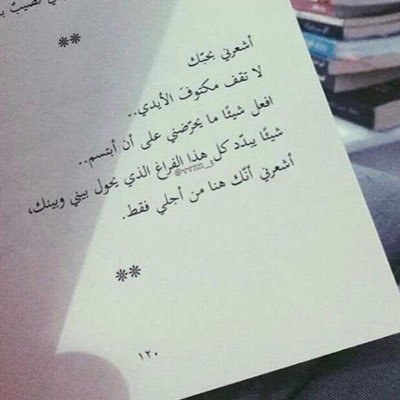 نصيبٌ
**
أشعرني بحبّك
لا تقف مكتوفَ الأيدي..
افعل شيئًا ما يحرّضني على أن أبتسم..
شيئًا يبدّد كل هذا الفراغ الذي يحول بيني وبينك،
أشعرني أنّك هنا من أجلي فقط.
**
١٢٠